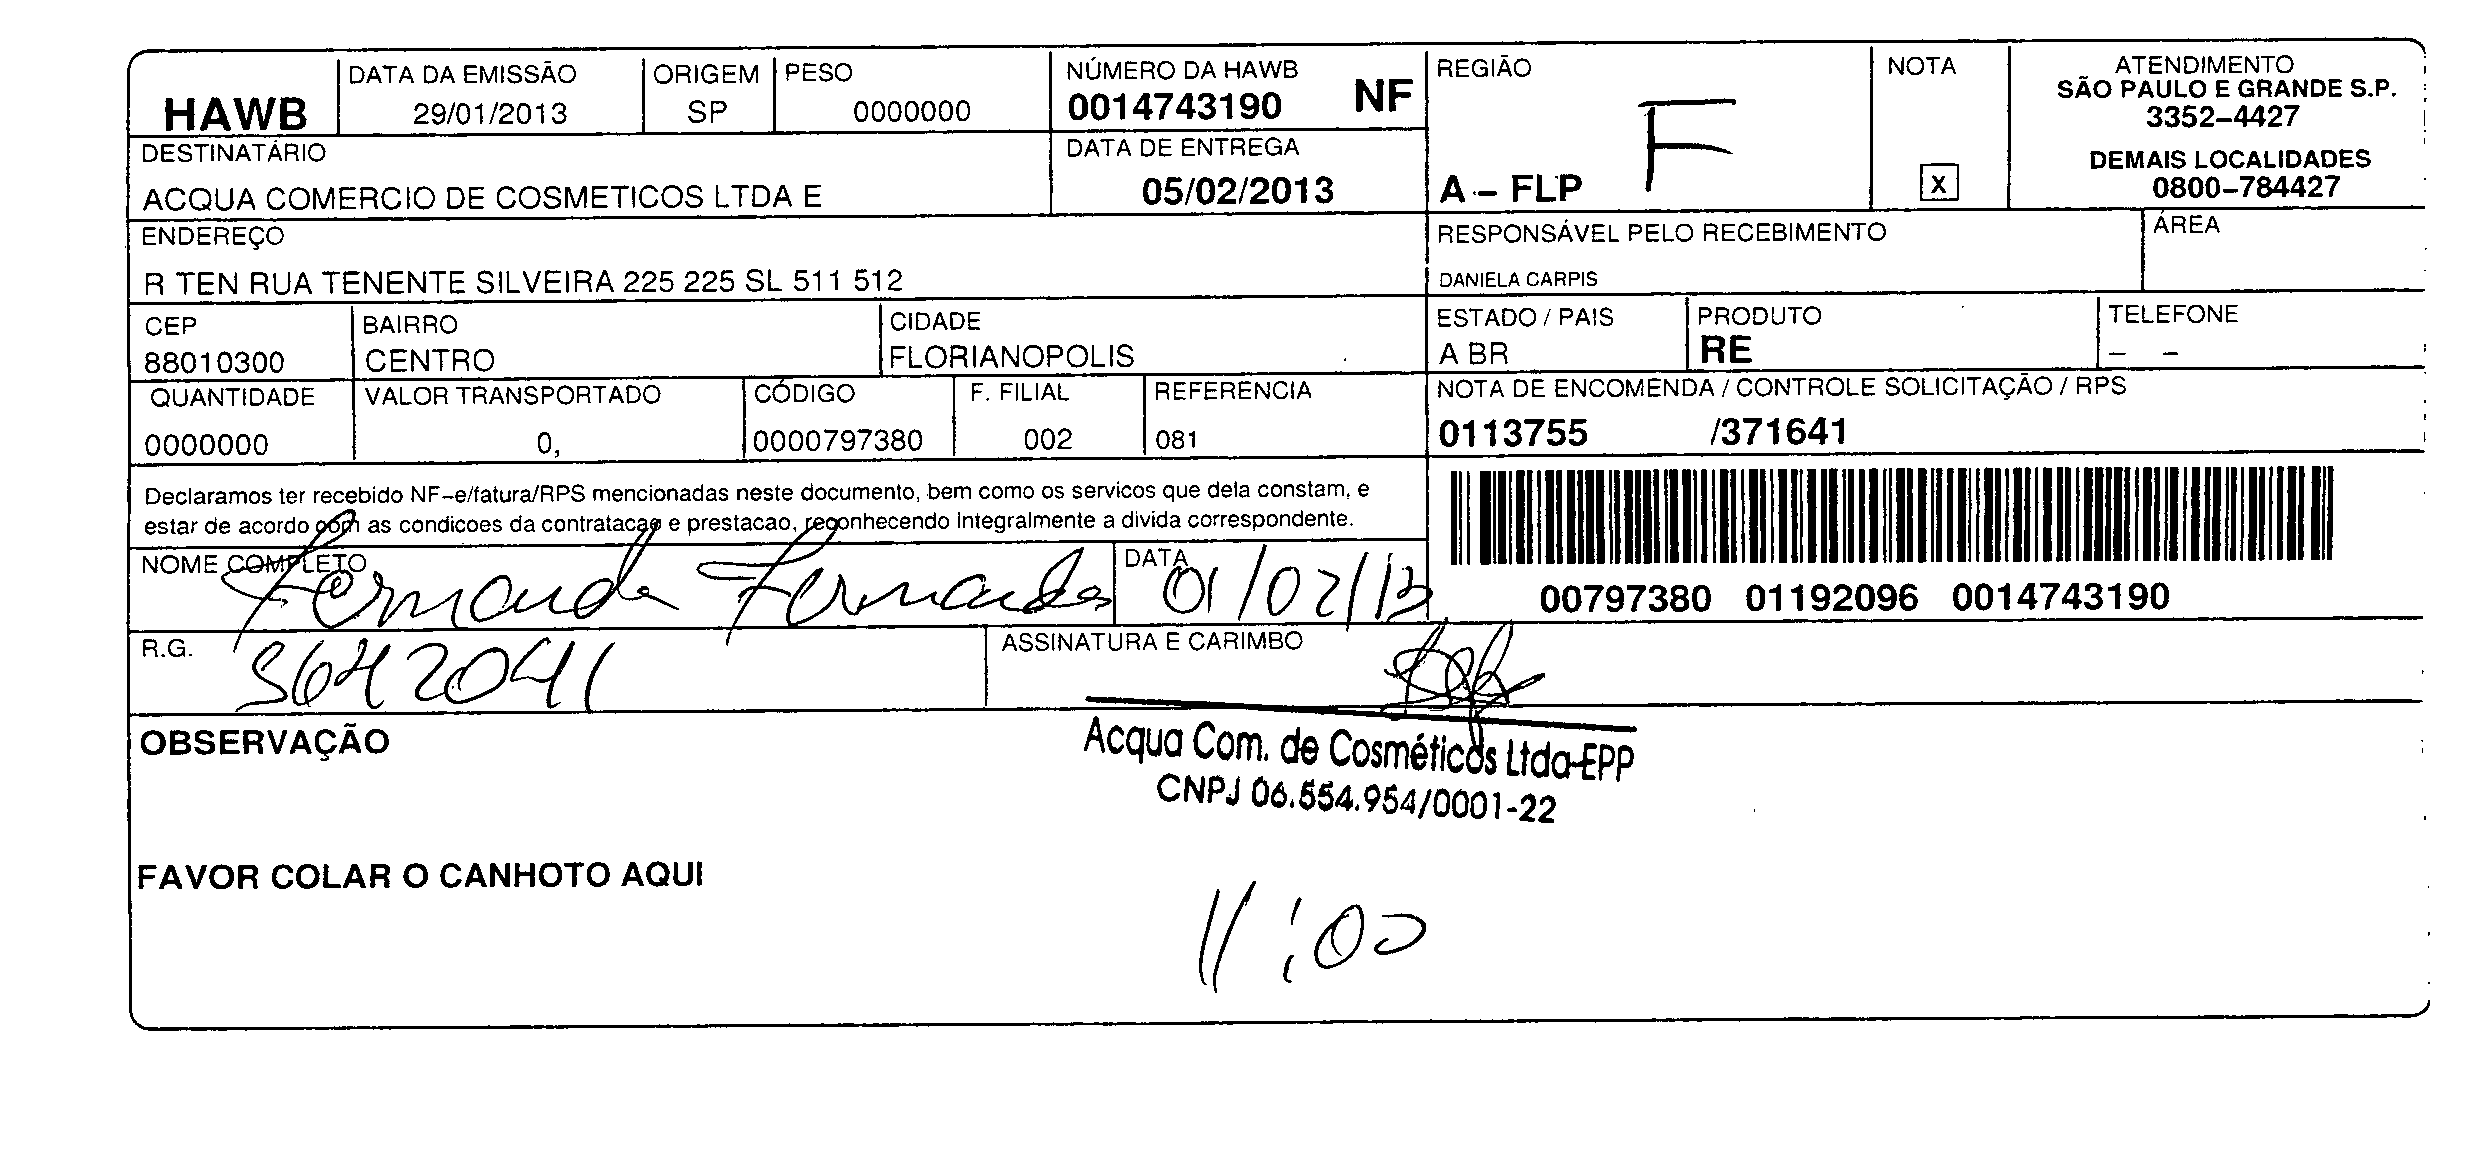 HAWB
DATA DA EMISSÃO
29/01/2013
ORIGEM
SP
PESO
0000000
NÚMERO DA HAWB
0014743190 NF
REGIÃO
A - FLP F
NOTA
X
ATENDIMENTO
SÃO PAULO E GRANDE S.P.
3352-4427
DEMAIS LOCALIDADES
0800-784427
DESTINATÁRIO
ACQUA COMERCIO DE COSMETICOS LTDA E
DATA DE ENTREGA
05/02/2013
ENDEREÇO
R TEN RUA TENENTE SILVEIRA 225 225 SL 511 512
RESPONSÁVEL PELO RECEBIMENTO
DANIELA CARPIS
ÁREA
CEP
88010300
BAIRRO
CENTRO
CIDADE
FLORIANOPOLIS
ESTADO / PAIS
A BR
PRODUTO
RE
TELEFONE
- -
QUANTIDADE
0000000
VALOR TRANSPORTADO
0,
CÓDIGO
0000797380
F. FILIAL
002
REFERENCIA
081
NOTA DE ENCOMENDA / CONTROLE SOLICITAÇÃO / RPS
0113755 /371641
Declaramos ter recebido NF-e/fatura/RPS mencionadas neste documento, bem como os servicos que dela constam, e
estar de acordo com as condicoes da contratacao e prestacao, reconhecendo integralmente a divida correspondente.
00797380 01192096 0014743190
NOME COMPLETO
Fernanda Fernandes
DATA
01/02/13
R.G.
3642041
ASSINATURA E CARIMBO
Acqua Com. de Cosméticos Ltda-EPP
CNPJ 06.554.954/0001-22
OBSERVAÇÃO
FAVOR COLAR O CANHOTO AQUI
11:00